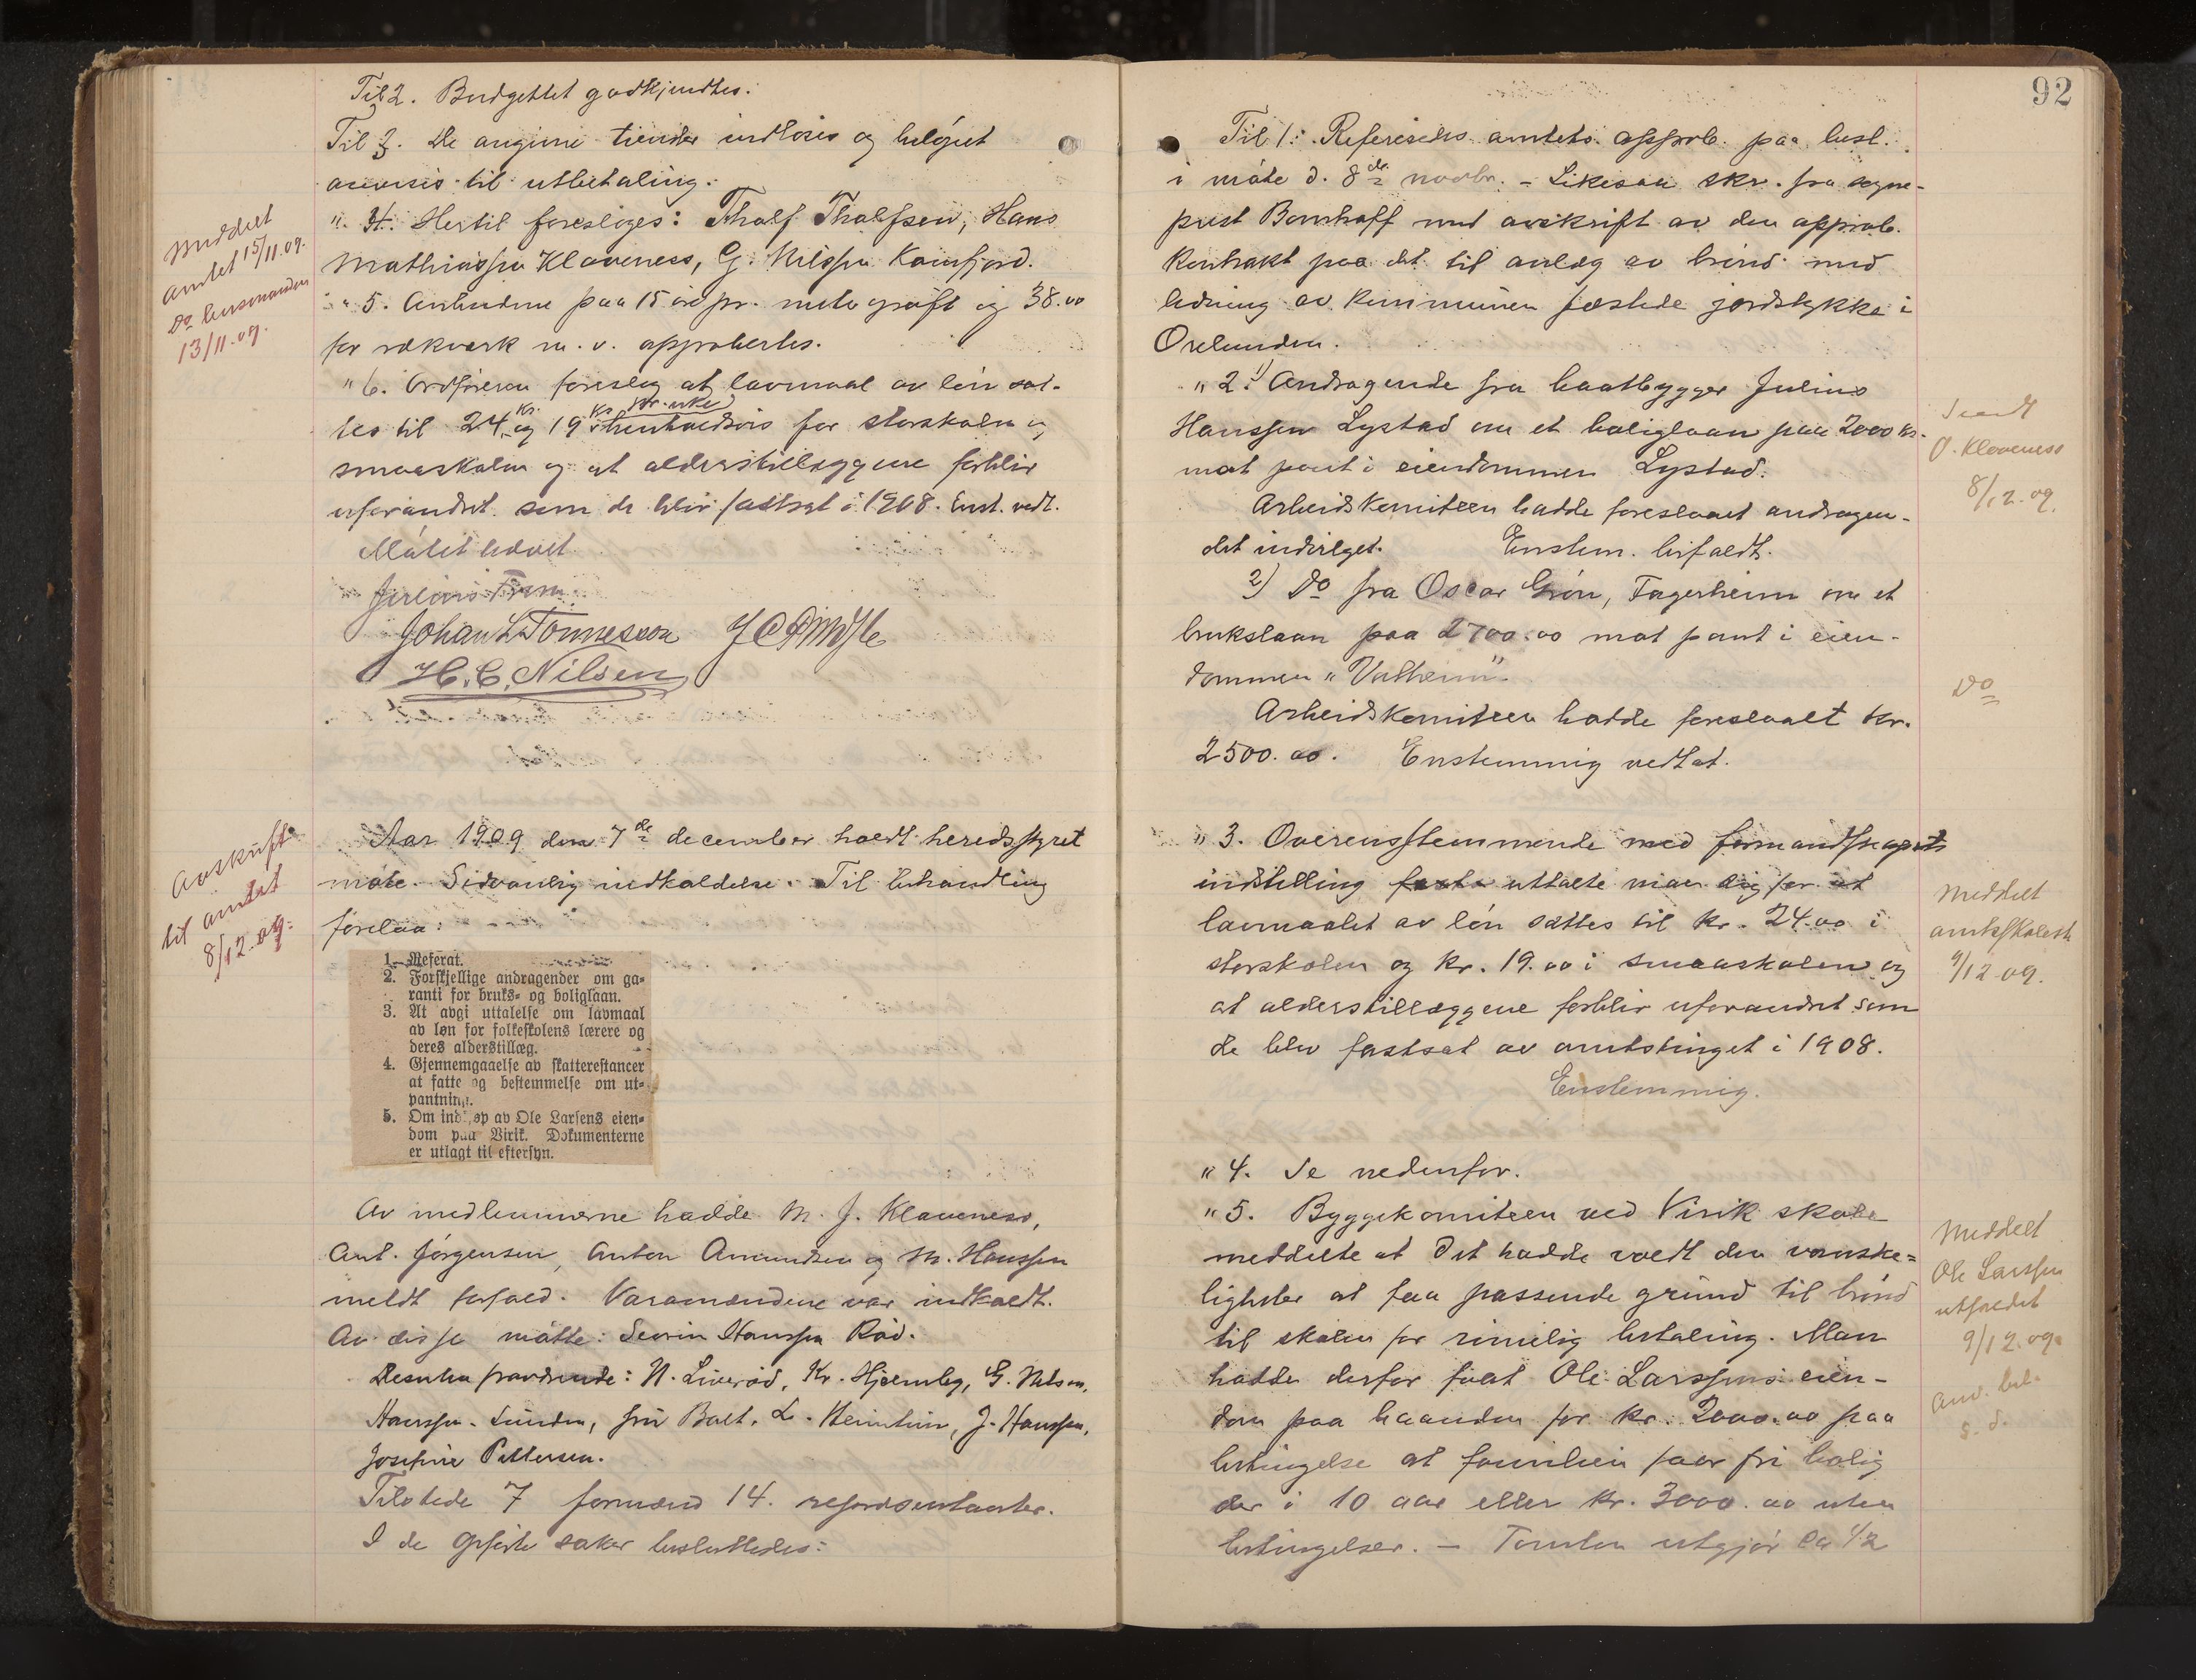 Til 2. Budgettet godkjendtes.
Til 3. De angivne tiender indløses og beløpet
anvises til utbetaling.
" 4. Hertil foresloges: Thalf Thalfsen, Hans
Mathiassen Klaveness, G. Nilssen Kamfjord.
" 5. Anbudene paa 15 øre pr. meter grøft og 38.00
for rækverk m. v. approbertes.
" 6. Ordføreren foreslog at lavmaal av løn sæt-
tes til 24 kr. og 19 kr. pr. uke henholdsvis for storskolen og
smaaskolen og at alderstillæggene forblir
uforandret som de blir fastsat i 1908. Enst. vedt.
Møtet hævet
Julius Fram
Johan L. Tønnesson
H. C. Nilsen
Meddelt
amtet 15/11.09.
Do lensmanden
13/11.09.
Aar 1909 den 7de december holdt heredsstyret
møte. Sedvanlig indkaldelse. Til behandling
forelaa:
Avskrift
til amtet
8/12.09.
1. Referat.
2. Forskjellige andragender om ga-
ranti for bruks- og boliglaan.
3. At avgi uttalelse om lavmaal
av løn for folkeskolens lærere og
deres alderstillæg.
4. Gjennemgaaelse av skatterestancer
at fatte og bestemmelse om ut-
pantning.
5. Om indkjøp av Ole Larsens eien-
dom paa Virik. Dokumenterne
er utlagt til eftersyn.
Av medlemmerne hadde M. J. Klaveness,
Ant. Jørgensen, Anton Amundsen og M. Hanssen
meldt forfald. Varamændene var indkaldt.
Av disse møtte: Severin Hanssen Rød.
Desuten fraværende: N. Liverød, Kr. Hjemleg, G. Nilsen,
Hanssen Sunden, fru Bolt, L. Heimtun, J. Hanssen,
Josefine Pettersen.
Tilstede 7 formænd 14 repræsentanter.
I de opførte saker besluttedes:
92
Til 1. Refereredes amtets approb. paa besl.
i møte d. 8de novbr. - Likesaa skr. fra sogne-
prest Bomhoff med avskrift av den approb.
kontrakt paa det til anlæg av brønd med
ledning av kommunen fæstede jordstykke i
Orelunden.
" 2. 1) Andragende fra baatbygger Julius
Hanssen Lystad om et boliglaan paa 2000 kr.
mot pant i eiendommen Lystad.
Arbeidskomiteen hadde foreslaaet andragen-
det indvilget. Enstem. bifaldt.
Sendt
O. Klaveness
8/12.09.
2) Do fra Oscar Grøn, Fagerheim om et
brukslaan paa 2700.00 mot pant i eien-
dommen "Valheim".
Do
Arbeidskomiteen hadde foreslaalt kr.
2500.00. Enstemmig vedtat.
" 3. Overensstemmende med formandskapets
indstilling uttalte man sig for at
lavmaalet av løn sættes til kr. 24.00 i
storskolen og kr. 19.00 i smaaskolen og
at alderstillæggene forblir uforandret som
de blev fastsat av amtstinget i 1908.
Enstemmig.
Meddelt
amtsskolest.
9/12.09.
" 4. Se nedenfor.
" 5. Byggekomiteen ved Virik skole
meddelte at det hadde voldt den vanske-
ligheter at faa passende grund til brønd
til skolen for rimelig betaling. Man
hadde derfor faat Ole Larssens eien-
dom paa haanden for kr. 2000.00 paa
betingelse at familien faar fri bolig
der i 10 aar eller kr. 3000.00 uten
betingelser. - Tomten utgjør ca 1/2
Meddelt
Ole Larssen
utfærdet
9/12.09.
Anv. bel.
s. d.